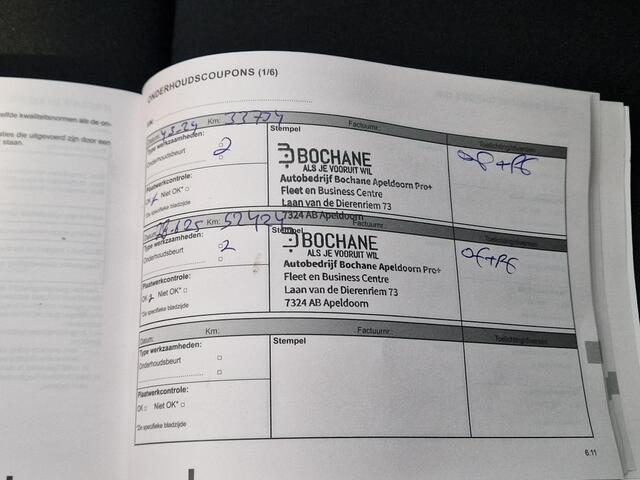 efde kwaliteitsnormen als de on-
ties die uitgevoerd zijn door een
staan.
ONDERHOUDSCOUPONS (1/6)
VIN:
Datum: Km: 33704 Factuurnr.: Toelichting/diversen
Type werkzaamheden:
Onderhoudsbeurt 2
Plaatwerkcontrole:
OK Niet OK*
*Zie specifieke bladzijde
Stempel
BOCHANE
ALS JE VOORUIT WIL
Autobedrijf Bochane Apeldoorn Pro+
Fleet en Business Centre
Laan van de Dierenriem 73
7324 AB Apeldoorn
Datum: Km: 52424
Type werkzaamheden:
Onderhoudsbeurt 2
Plaatwerkcontrole:
OK Niet OK*
*Zie specifieke bladzijde
Stempel
BOCHANE
ALS JE VOORUIT WIL
Autobedrijf Bochane Apeldoorn Pro+
Fleet en Business Centre
Laan van de Dierenriem 73
7324 AB Apeldoorn
Datum: Km: Factuurnr.: Toelichting/diversen
Type werkzaamheden:
Onderhoudsbeurt
Plaatwerkcontrole:
OK Niet OK*
*Zie specifieke bladzijde
Stempel
6.11